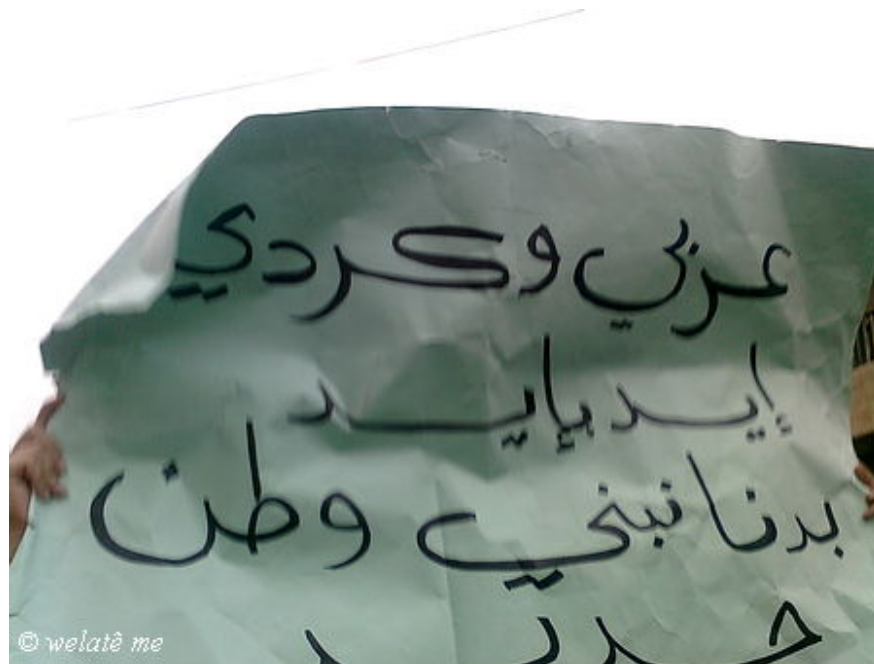 عربي وكردي
إيد بإيد
بدنا نبني وطن
جديد
© welatê me